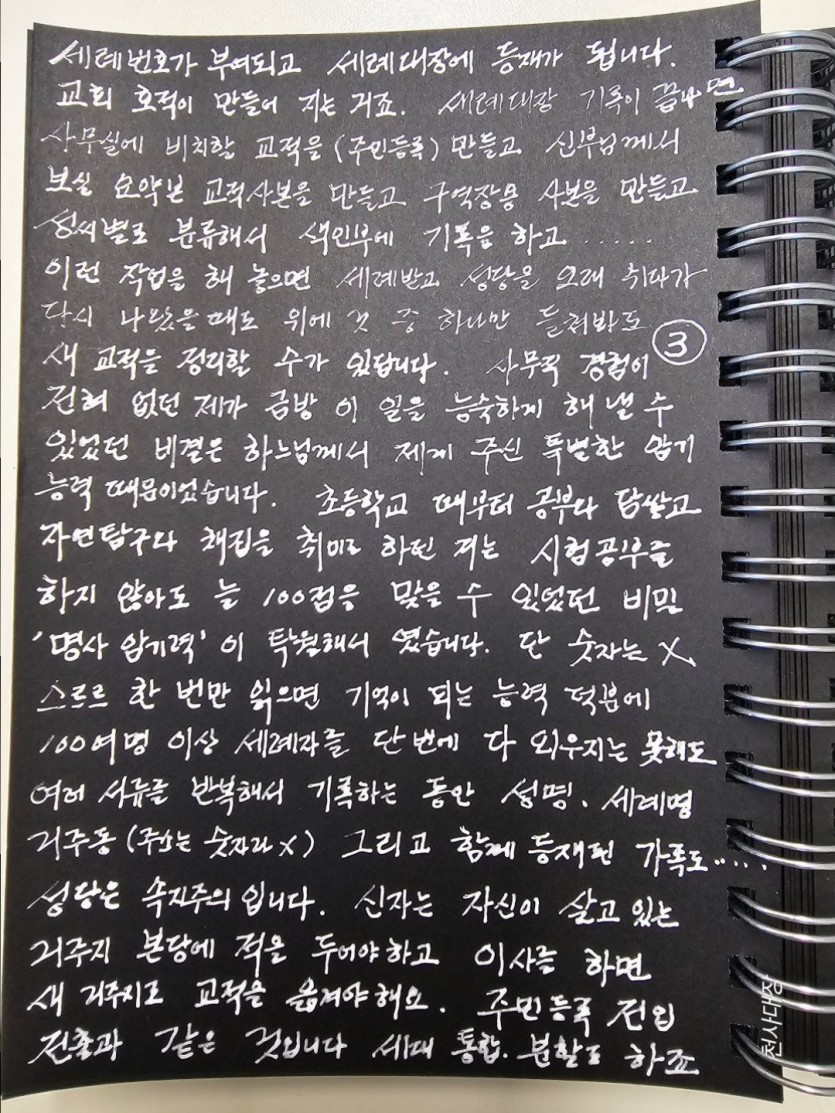 세례번호가 부여되고 세례대장에 등재가 됩니다.
교회 호적이 만들어 지는 거죠. 세례대장 기록이 끝나면
사무실에 비치할 교적을 (주민등록) 만들고 신부님께서
보실 요약본 교적사본을 만들고 구역장용 사본을 만들고
성씨별로 분류해서 색인부에 기록을 하고.....
이런 작업을 해 놓으면 세례받고 성당을 오래 쉬다가
다시 나왔을때도 위에 것 중 하나만 들쳐봐도
③
새 교적을 정리할 수가 있답니다. 사무적 경험이
전혀 없던 제가 금방 이 일을 능숙하게 해 낼 수
있었던 비결은 하느님께서 제게 주신 특별한 암기
능력 때문이었습니다. 초등학교 때부터 공부와 담쌓고
자연탐구와 채집을 취미로 하던 저는 시험공부를
하지 않아도 늘 100점을 맞을 수 있었던 비밀
'명사 암기력'이 탁월해서 였습니다. 단 숫자는 X.
스르르 한 번만 읽으면 기억이 되는 능력 덕분에
100여명 이상 세례자를 단번에 다 외우지는 못해도
여러 서류를 반복해서 기록하는 동안 성명. 세례명
거주동 (주소는 숫자라 X) 그리고 함께 등재된 가족도.....
성당은 속지주의 입니다. 신자는 자신이 살고 있는
거주지 본당에 적을 두어야하고 이사를 하면
새 거주지로 교적을 옮겨야해요. 주민등록 전입
전출과 같은 것입니다 세대 통합. 분할도 하죠
천사대장